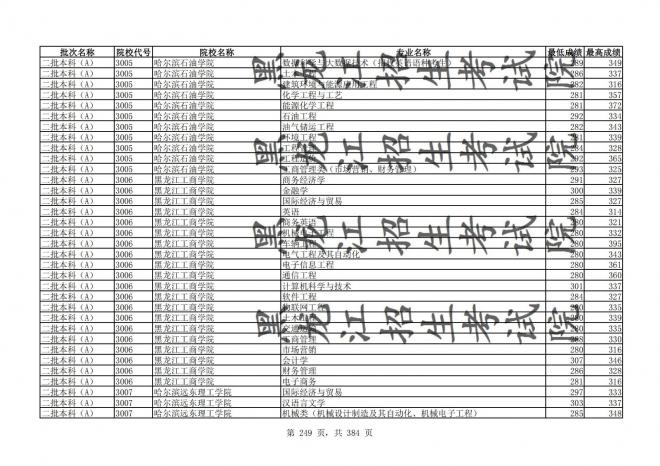 批次名称 院校代号 院校名称 专业名称 最低成绩 最高成绩
二批本科（A） 3005 哈尔滨石油学院 数据科学与大数据技术（招收英语语种考生） 289 349
二批本科（A） 3005 哈尔滨石油学院 土木工程 286 337
二批本科（A） 3005 哈尔滨石油学院 建筑环境与能源应用工程 282 316
二批本科（A） 3005 哈尔滨石油学院 化学工程与工艺 281 357
二批本科（A） 3005 哈尔滨石油学院 能源化学工程 281 372
二批本科（A） 3005 哈尔滨石油学院 石油工程 292 334
二批本科（A） 3005 哈尔滨石油学院 油气储运工程 282 343
二批本科（A） 3005 哈尔滨石油学院 环境工程 281 339
二批本科（A） 3005 哈尔滨石油学院 284 328
二批本科（A） 3005 哈尔滨石油学院 工程造价 292 365
二批本科（A） 3005 哈尔滨石油学院 工商管理类（市场营销、财务管理） 293 325
二批本科（A） 3006 黑龙江工商学院 商务经济学 291 327
二批本科（A） 3006 黑龙江工商学院 金融学 300 339
二批本科（A） 3006 黑龙江工商学院 国际经济与贸易 285 327
二批本科（A） 3006 黑龙江工商学院 英语 284 314
二批本科（A） 3006 黑龙江工商学院 商务英语 280 321
二批本科（A） 3006 黑龙江工商学院 机械电子工程 280 332
二批本科（A） 3006 黑龙江工商学院 车辆工程 280 395
二批本科（A） 3006 黑龙江工商学院 电气工程及其自动化 280 343
二批本科（A） 3006 黑龙江工商学院 电子信息工程 280 361
二批本科（A） 3006 黑龙江工商学院 通信工程 280 360
二批本科（A） 3006 黑龙江工商学院 计算机科学与技术 301 337
二批本科（A） 3006 黑龙江工商学院 软件工程 284 327
二批本科（A） 3006 黑龙江工商学院 物联网工程 280 335
二批本科（A） 3006 黑龙江工商学院 土木工程 280 339
二批本科（A） 3006 黑龙江工商学院 交通运输 280 335
二批本科（A） 3006 黑龙江工商学院 工商管理 280 330
二批本科（A） 3006 黑龙江工商学院 市场营销 280 316
二批本科（A） 3006 黑龙江工商学院 会计学 307 346
二批本科（A） 3006 黑龙江工商学院 财务管理 286 328
二批本科（A） 3006 黑龙江工商学院 电子商务 281 316
二批本科（A） 3007 哈尔滨远东理工学院 国际经济与贸易 297 333
二批本科（A） 3007 哈尔滨远东理工学院 汉语言文学 303 337
二批本科（A） 3007 哈尔滨远东理工学院 机械类（机械设计制造及其自动化、机械电子工程） 285 348
黑龙江招生考试院
黑龙江招生考试院
黑龙江招生考试院
黑龙江招生考试院
第 249 页，共 384 页